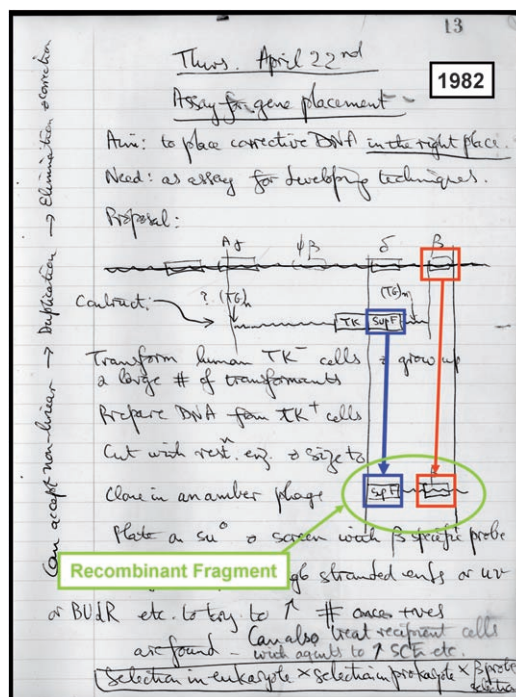 13
Thurs. April 22nd
1982
Assay for gene placement -
Aim: to place corrective DNA in the right place.
Need: as assay for developing techniques.
Proposal:
Aγ ψβ δ β
? (TG)n (TG)n
Construct:
TK SupF
Transform human TK- cells & grow up
a large # of transformants
Prepare DNA from TK+ cells
Cut with restn. enz. & size to
β
Clone in an amber phage
SupF
Plate on su° & screen with β specific probe
Recombinant Fragment
stranded ends or uv
or BUdR etc. to try to ↑ # once +ves
are found - Can also treat recipient cells
with agents to ↑ SCE etc.
Selection in eukaryote × selection in prokaryote × β probe
selection
Can accept non-linear → Duplication → Elimination & correction